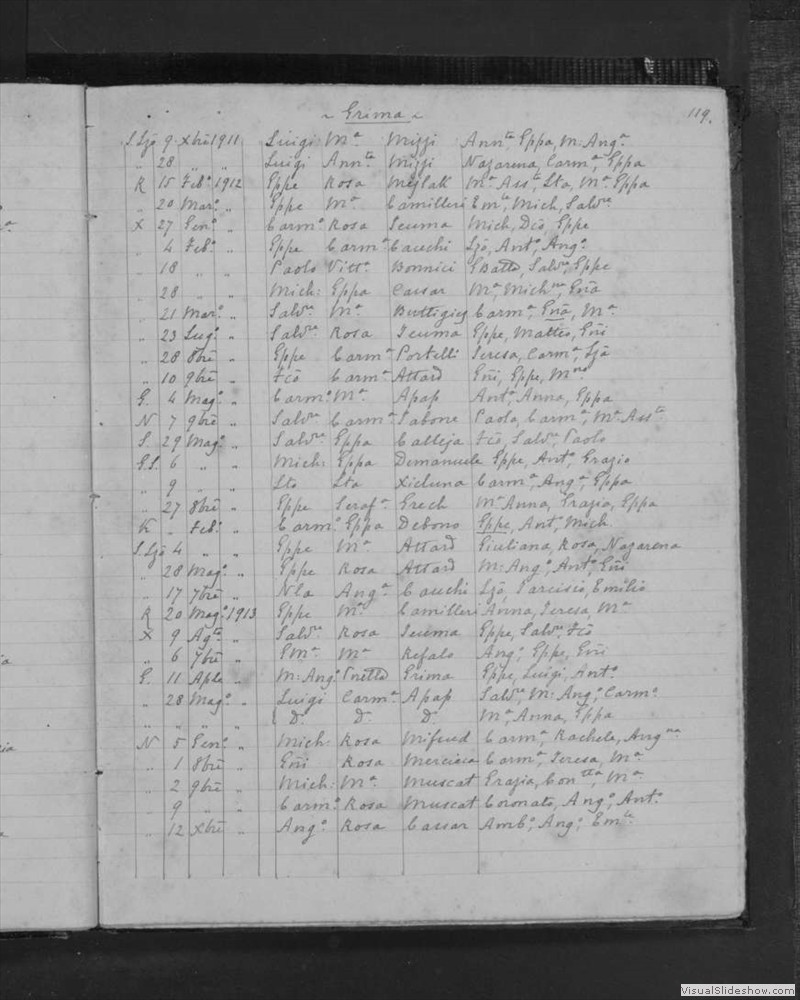 ~ Grima ~
119.
S. Ljō 9 Xbrē 1911 Luigi Mª Mizzi Annᵗᵃ, Eppa, M. Angª
" 28 " " Luigi Annᵗᵃ Mizzi Nazarena, Carmª, Eppa
K 15 Febº 1912 Eppe Rosa Mejlak Mª Assᵗᵃ, Sta, Mª Eppa
" 20 Marº " Eppe Mª Camilleri Emᵗᵃ, Mich, Salvʳᵉ
X 27 Genº " Carmº Rosa Scuma Mich, Dcō, Eppe
" 4 Febº " Eppe Carmª Cauchi Ljō, Antº, Angº
" 18 " " Paolo Vittª Bonnici GBatta, Salvʳᵉ, Eppe
" 28 " " Mich: Eppa Cassar Mª, Michⁿᵃ, Gñā
" 21 Marº " Salvʳᵉ Mª Buttigieg Carmª, Gñā, Mª
" 23 Lugº " Salvʳᵉ Rosa Scuma Eppe, Matteo, Gñi
" 28 8brē " Eppe Carmª Portelli Teresa, Carmª, Ljā
" 10 9brē " Fcō Carmª Attard Gñi, Eppe, Mⁿᵒ
G. 4 Magº " Carmº Mª Apap Antª, Anna, Eppa
N 7 9brē " Salvʳᵉ Carmª Tabone Paola, Carmª, Mª Assᵗᵃ
S. 29 Magº " Salvʳᵉ Eppa Calleja Fcō, Salvʳᵉ, Paolo
G.S. 6 " " Mich: Eppa Demanuele Eppe, Antº, Grazio
" 9 " " Sto Sta Xicluna Carmª, Angª, Eppa
" 27 8brē " Eppe Serafª Grech Mª Anna, Grazia, Eppa
K " Febº " Carmº Eppa Debono Eppe, Ant, Mich
S. Ljō 4 " " Eppe Mª Attard Giuliana, Rosa, Nazarena
" 28 Magº " Eppe Rosa Attard M: Angº, Antº, Gñi
" 17 7brē " Nla Angª Cauchi Ljō, Tarcisio, Emilio
K 20 Magº 1913 Eppe Mª Camilleri Anna, Teresa, Mª
X 9 Agᵗᵒ " Salvʳᵉ Rosa Scuma Eppe, Salvʳᵉ, Fcō
" 6 7brē " Emª Mª Refalo Angº, Eppe, Gñi
G. 11 Aple " M: Angº Grima Eppe, Luigi, Antº
" 28 Magº " Luigi Carmª Apap Salvʳᵉ, M: Angº, Carmº
" " " " D. D. D. Mª, Anna, Eppa
N 5 Genº " Mich: Rosa Mifsud Carmª, Rachela, Angⁿᵃ
" 1 8brē " Gñi Rosa Mercieca Carmª, Teresa, Mª
" 2 9brē " Mich: Mª Muscat Grazia, Conᵗᵗᵃ, Mª
" 9 " " Carmº Rosa Muscat Coronato, Angº, Antº
" 12 Xbrē " Angº Rosa Cassar Ambº, Angº, Emˡᵉ
VisualSlideshow.com